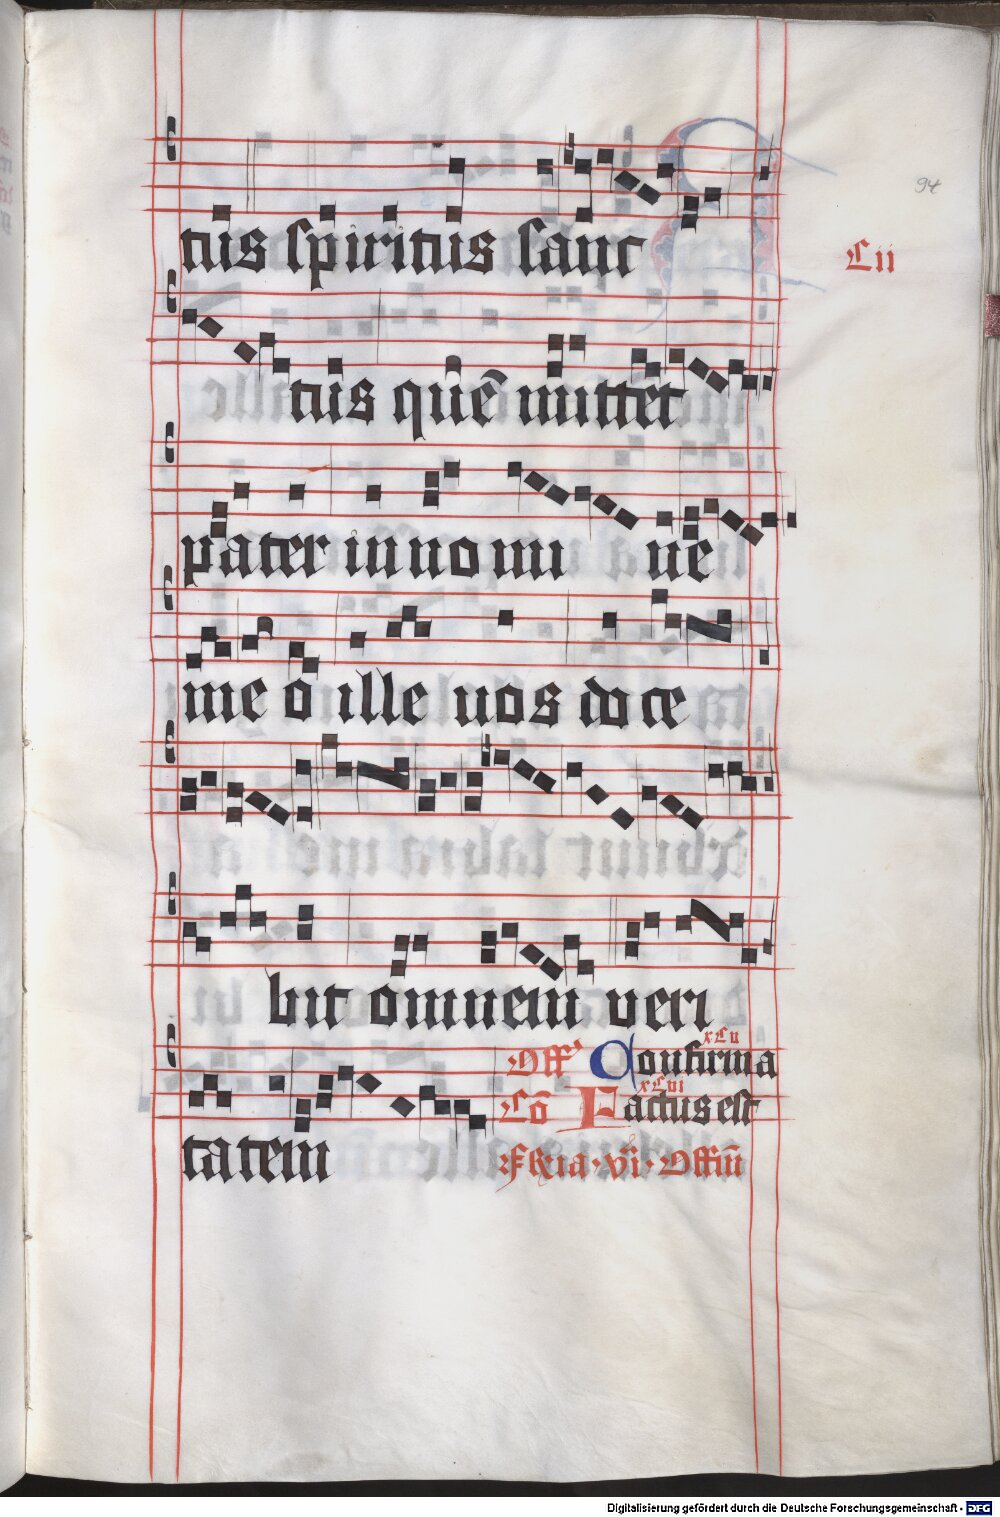 94
tus spiritus sanc
Lii
tus quē mittet
pater in no mi ne
me o ille uos do ce
bit omnem veri
xLii
Off' Confirma
xLiii
Cō Factus est
ta tem
Feria · vi · Offm̄
Digitalisierung gefördert durch die Deutsche Forschungsgemeinschaft - DFG